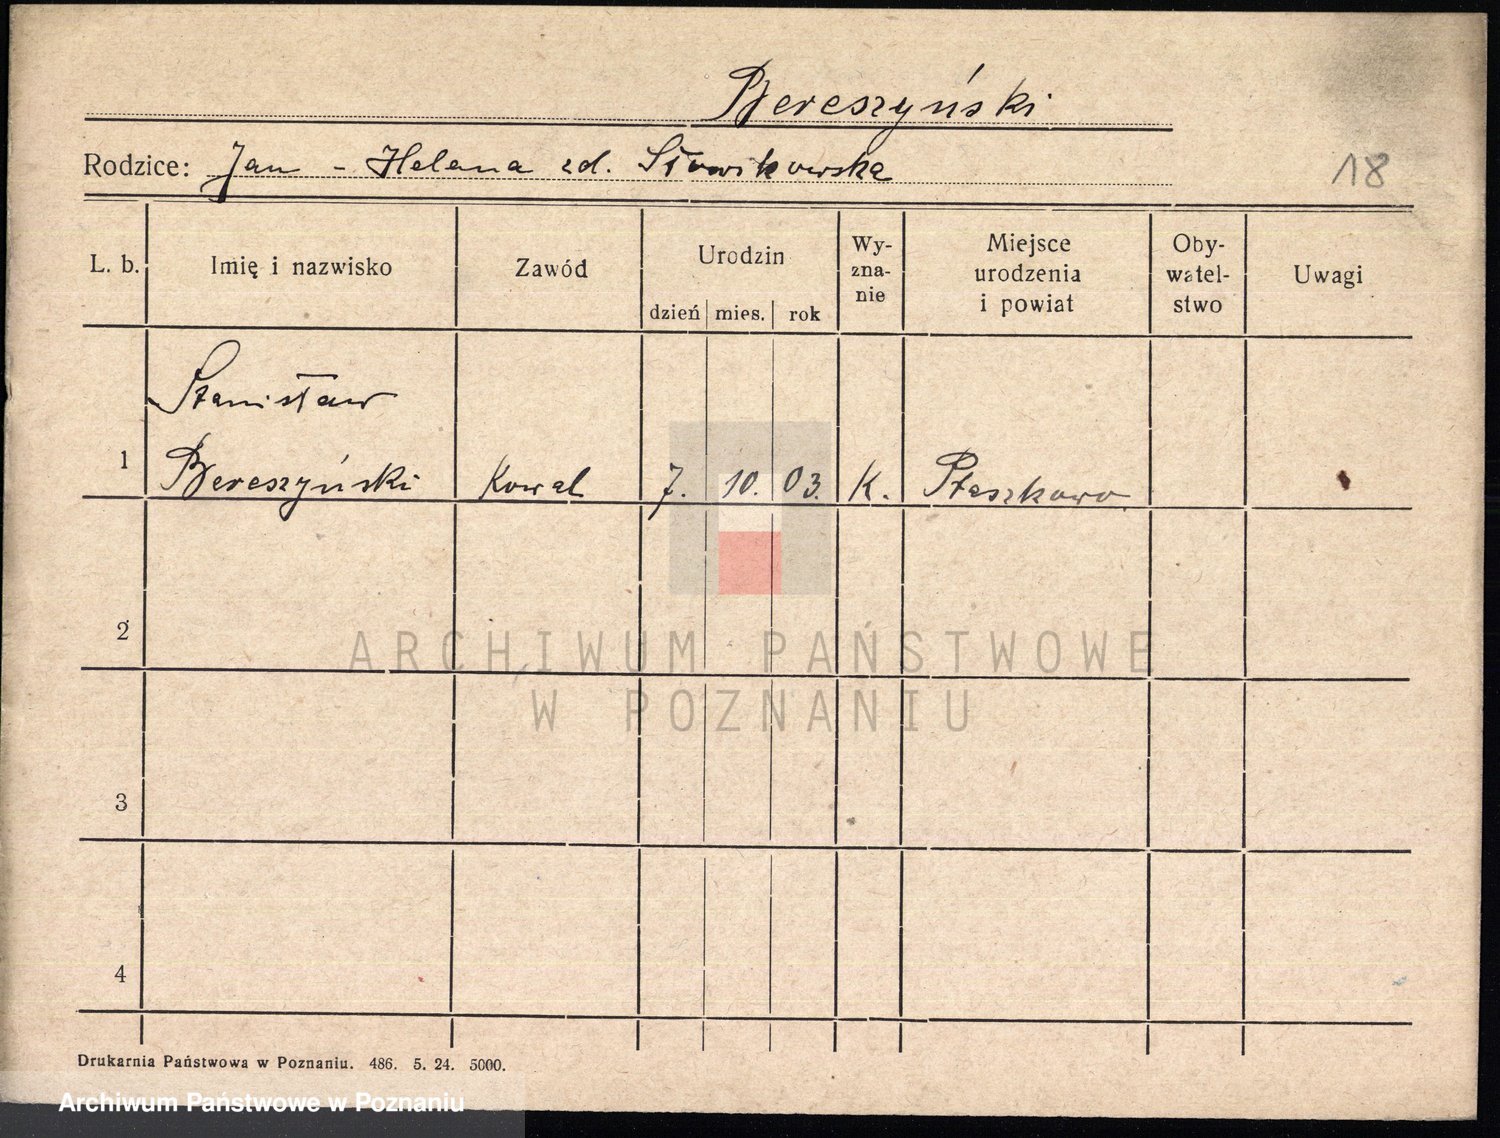 Bereszyński
Rodzice: Jan - Helena zd. Słowikowska
18
L. b.
Imię i nazwisko
Zawód
Urodzin
dzień mies. rok
Wy-
zna-
nie
Miejsce
urodzenia
i powiat
Oby-
watel-
stwo
Uwagi
Stanisław
1 Bereszyński Kowal 7. 10. 03. K. Ptaszkowo
2
3
4
ARCHIWUM PAŃSTWOWE
W POZNANIU
Drukarnia Państwowa w Poznaniu. 486. 5. 24. 5000.
Archiwum Państwowe w Poznaniu